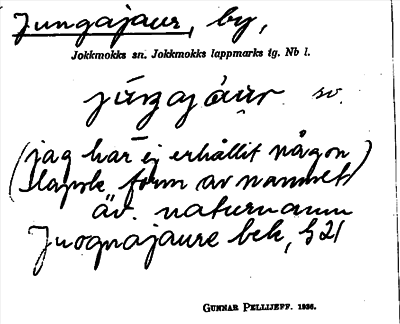 Jungajaur, by,
Jokkmokks sn. Jokkmokks lappmarks tg. Nb l.
júŋgajàur sv.
(jag har ej erhållit någon
lapsk form av namnet)
äv. naturnamn
Juognajaure bek, § 21
GUNNAR PELLIJEFF. 1936.